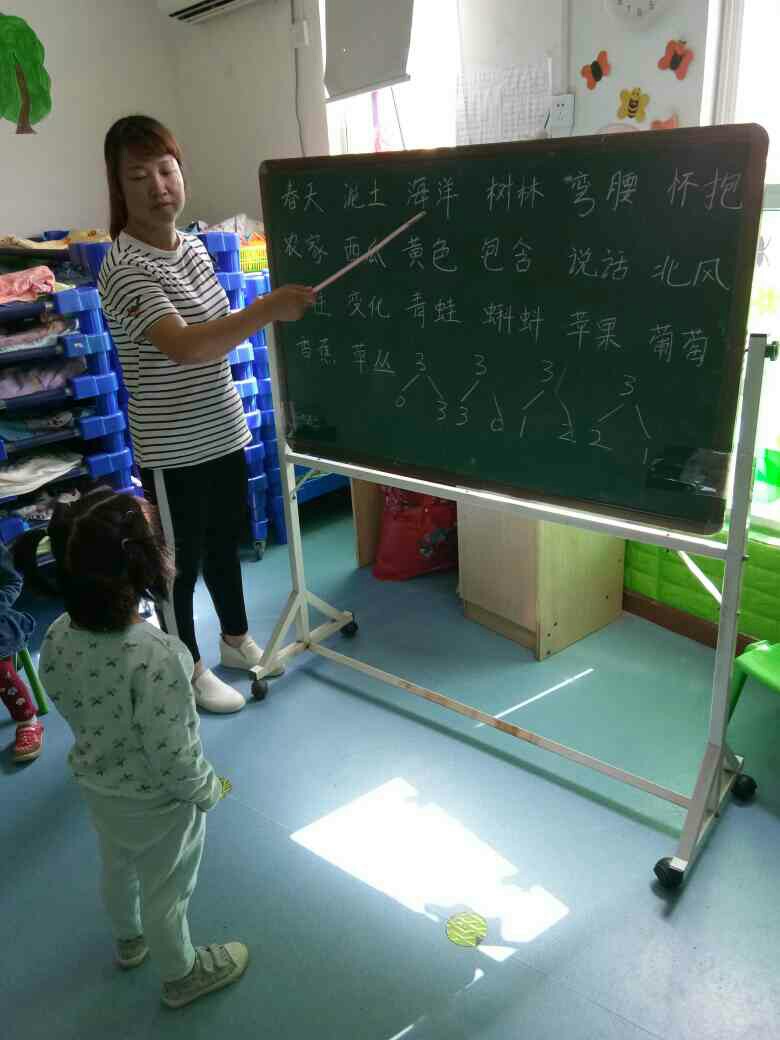 春天 泥土 海洋 树林 弯腰 怀抱
农家 西瓜 黄色 包含 说话 北风
变化 青蛙 蝌蚪 苹果 葡萄
香蕉 草丛 3 3 3 3
0 3 3 0 1 2 2 1